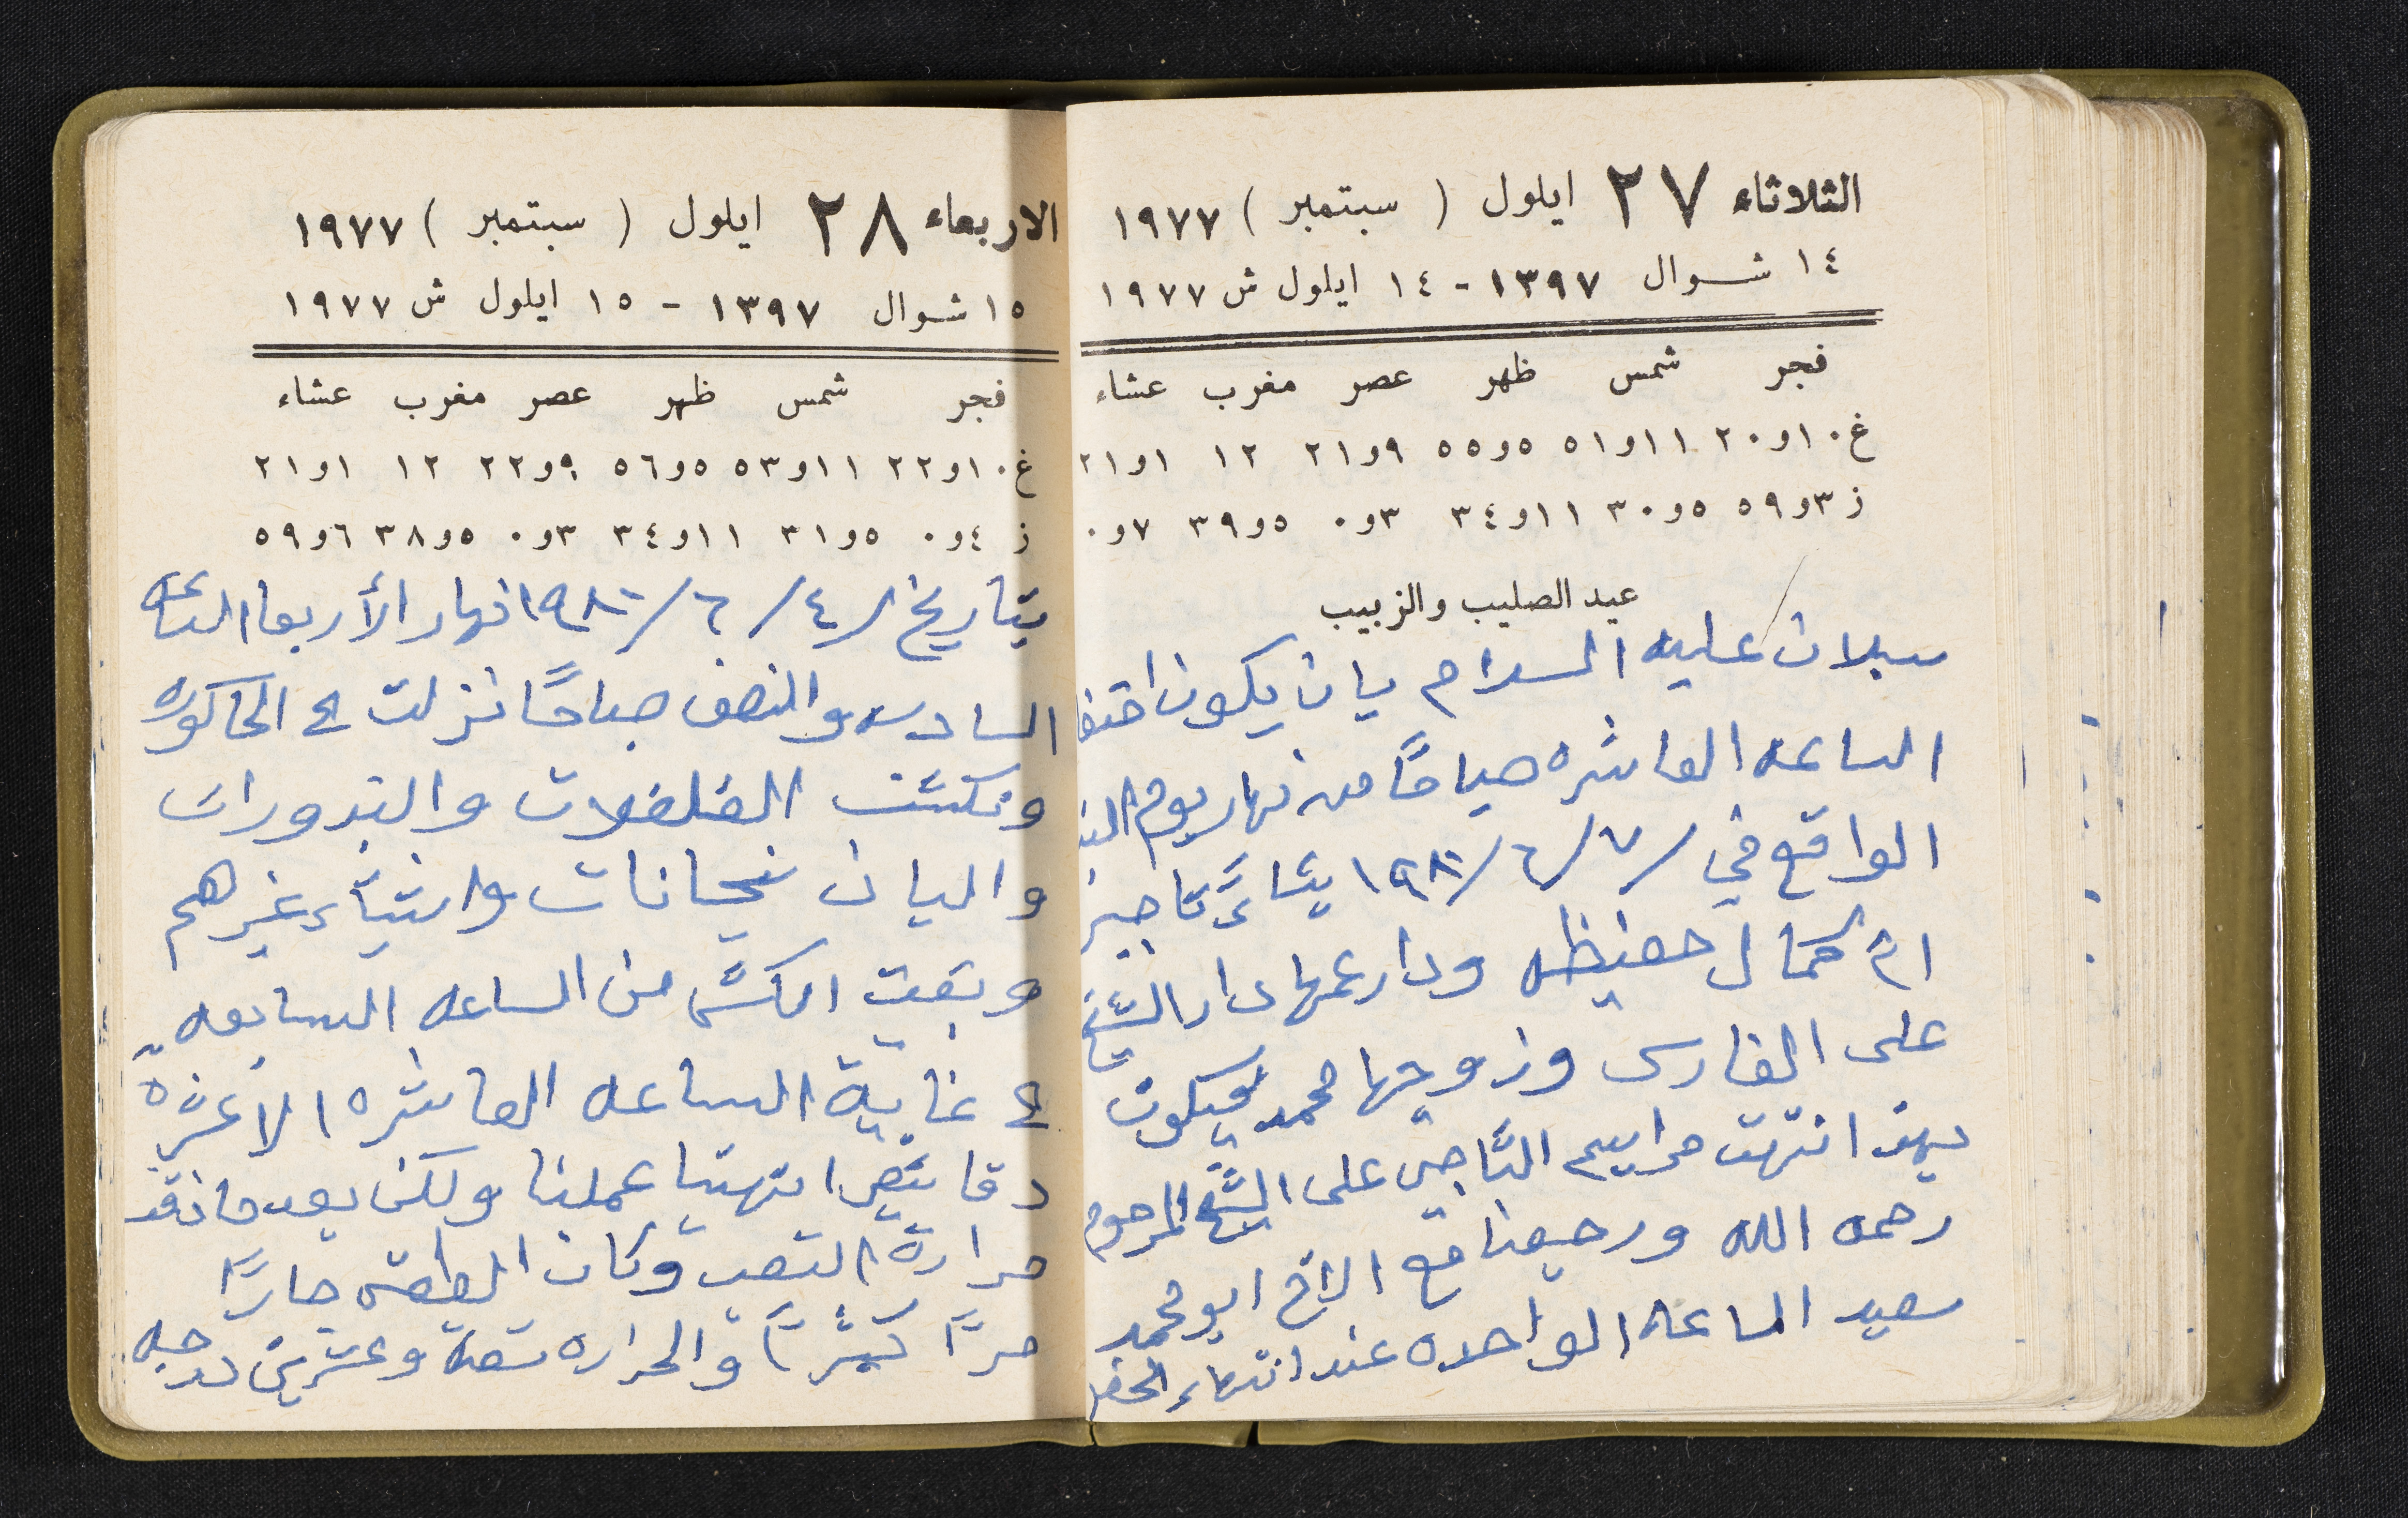 الثلاثاء ٢٧ ايلول ( سبتمبر ) ١٩٧٧
١٤ شوال ١٣٩٧ - ١٤ ايلول ش ١٩٧٧
فجر شمس ظهر عصر مغرب عشاء
غ ١٠و٢٠ ١١و٥١ ٥و٥٥ ٩و٢١ ١٢ ١و٢١
ز ٣و٥٩ ٥و٣٠ ١١و٣٤ ٣و٠ ٥و٣٩ ٧و٠
عيد الصليب والزبيب
سبلان عليه السلام بان يكون
الساعه العاشره صباحًا من نهار يوم
الواقع في ٧/٦/١٩٨٠
ام كمال حفيظه ودار عمها دار الشيخ
على الفارس وزوجها محمد
بهذ انتهت مراسيم التاجير على الشيخ المرحوم
رحمه الله ورجعنا مع الاخ ابو محمد
سعيد الساعه الواحده عند انتهاء
الاربعاء ٢٨ ايلول ( سبتمبر ) ١٩٧٧
١٥ شوال ١٣٩٧ - ١٥ ايلول ش ١٩٧٧
فجر شمس ظهر عصر مغرب عشاء
غ ١٠و٢٢ ١١و٥٣ ٥و٥٦ ٩و٢٢ ١٢ ١و٢١
ز ٤و٠ ٥و٣١ ١١و٣٤ ٣و٠ ٥و٣٨ ٦و٥٩
بتاريخ ٤/٦/١٩٨٠ نهار الأربعا الساعه
السادسه والنصف صباحًا نزلت ع الحاكوره
ونكشت الفلفلات والبندورات
واليان نجانات واشياء غيرهم
وبقيت انكش من الساعه السابعه
ع غاية الساعه العاشره الا عشرة
دقايق انتهيا عملنا ولكن بعد ما
مرارة التعب وكان الطقس حارًا
حرًا كثيرًا والحراره تسعة وعشرين درجه